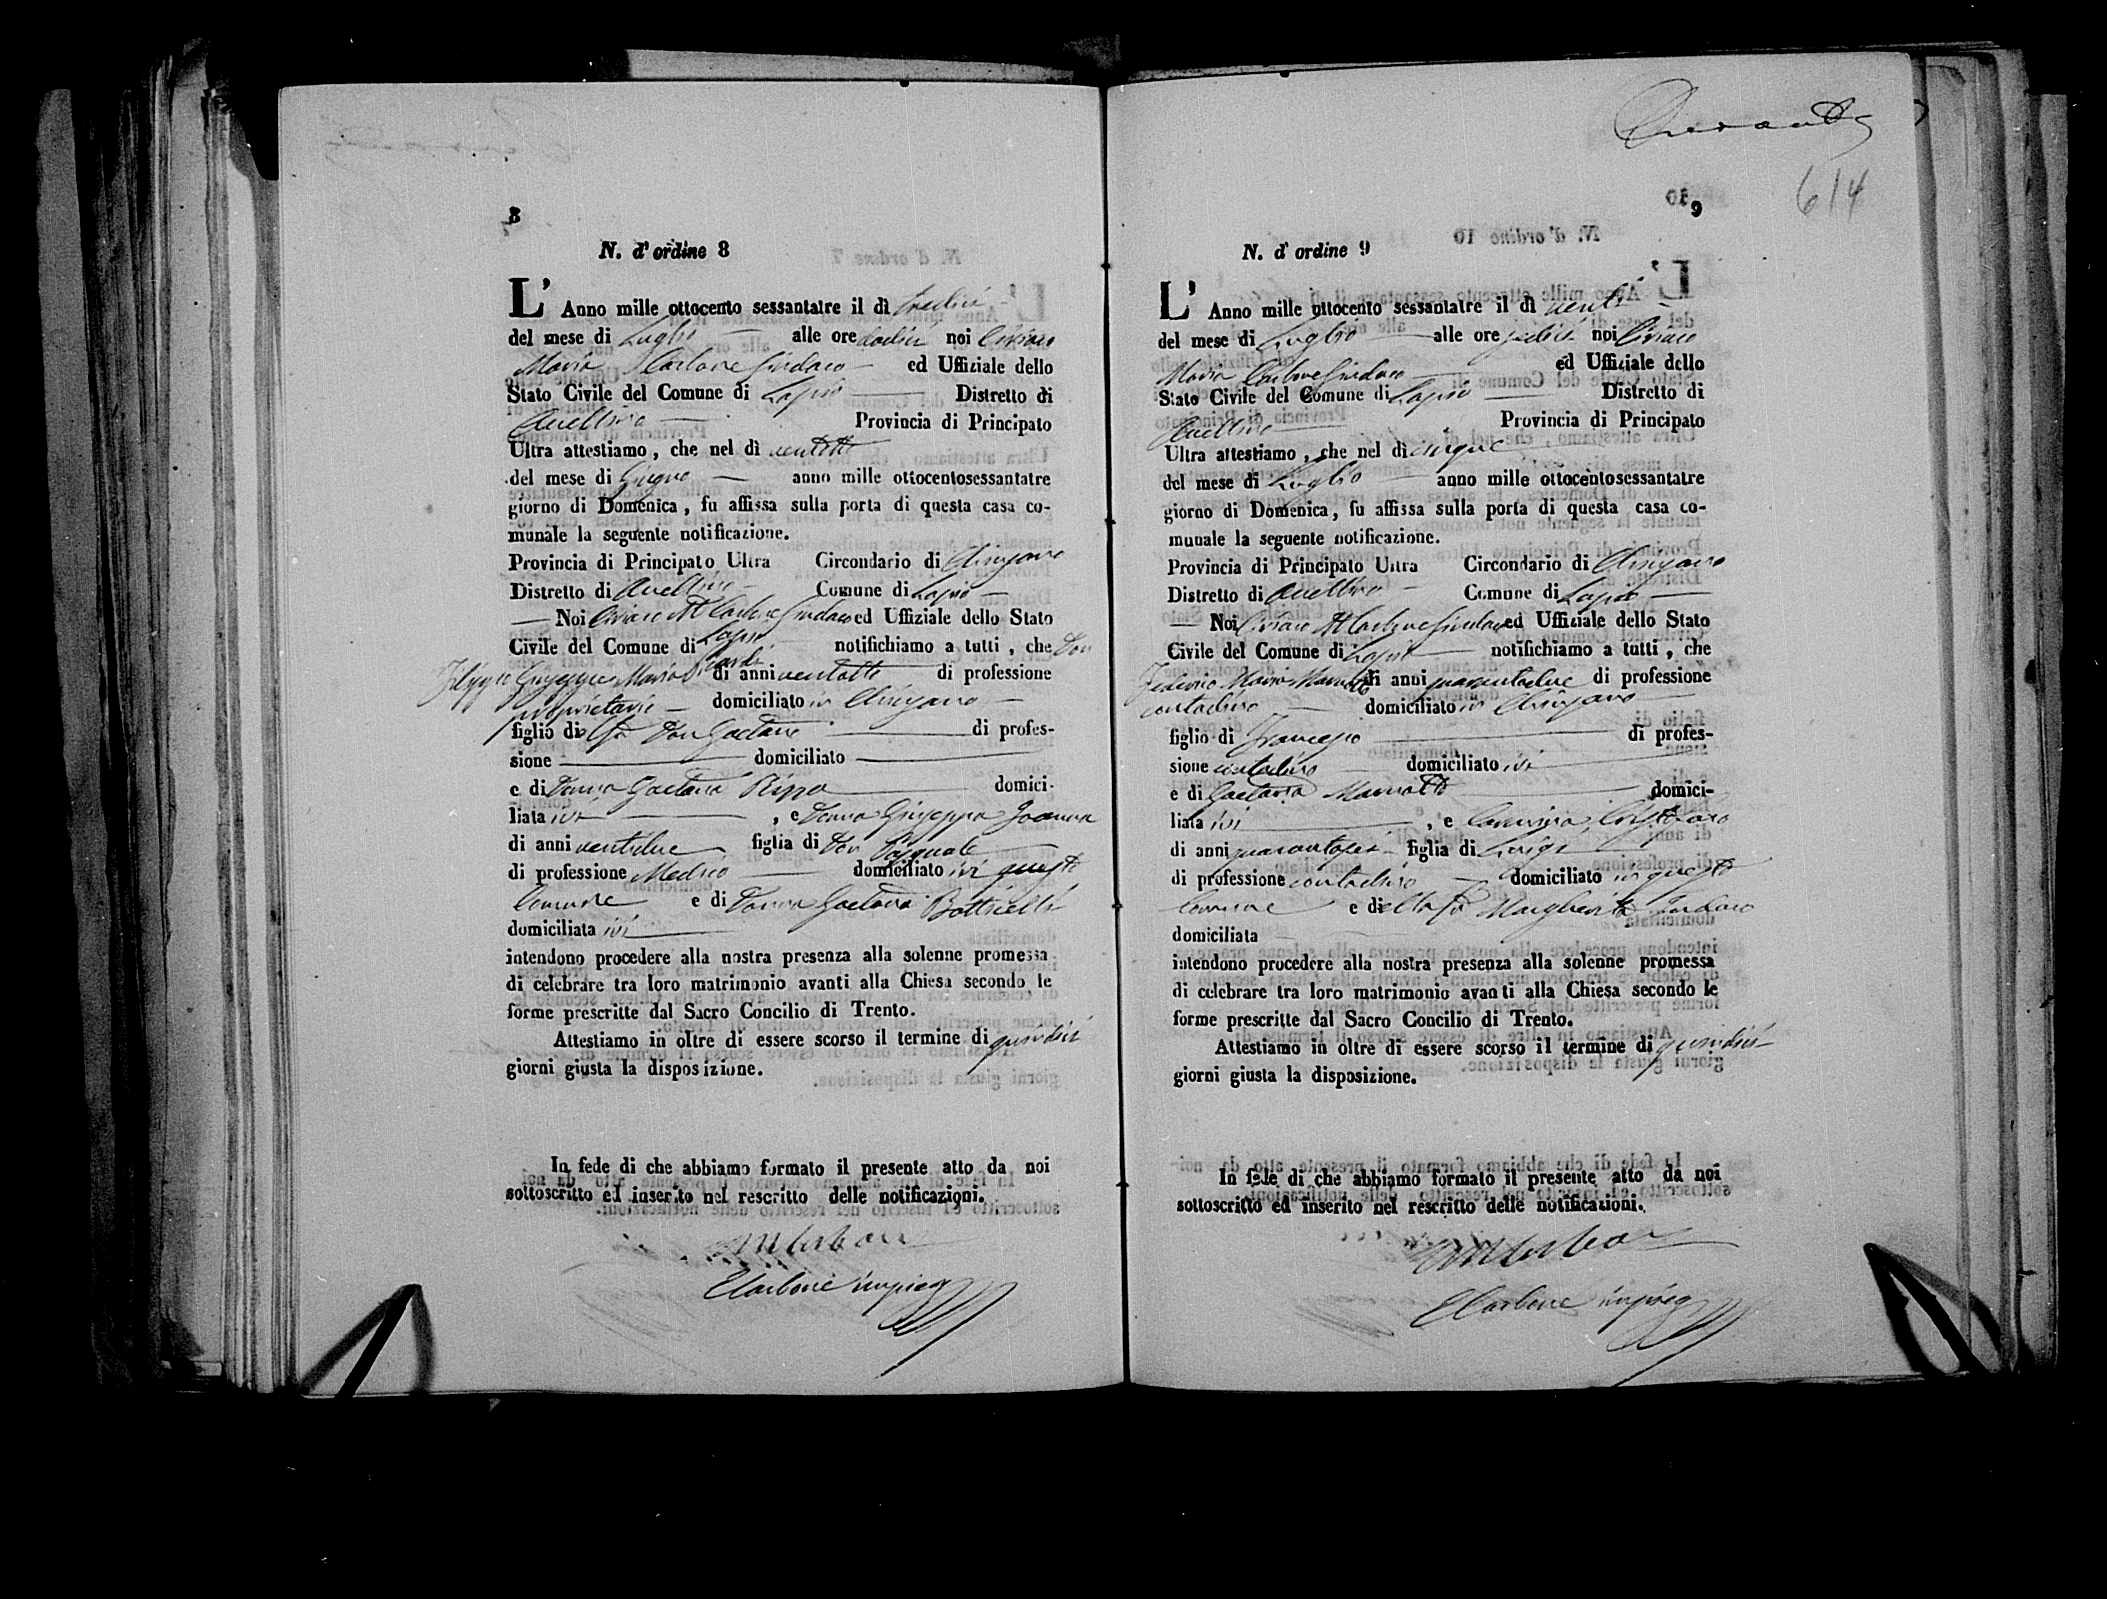 8
N. d' ordine 8
L' Anno mille ottocento sessantatre il dì tredici
del mese di Luglio alle ore dodici noi Ciriaco
Maria Carbone Sindaco ed Uffiziale dello
Stato Civile del Comune di Lapio Distretto di
Avellino Provincia di Principato
Ultra attestiamo, che nel dì ventotto
del mese di Giugno anno mille ottocentosessantatre
giorno di Domenica, fu affissa sulla porta di questa casa co-
munale la seguente notificazione.
Provincia di Principato Ultra Circondario di
Distretto di Avellino Comune di Lapio
Noi Ciriaco M Carbone Sindaco ed Uffiziale dello Stato
Civile del Comune di Lapio notifichiamo a tutti, che Don
Filippo Giuseppe Maria di anni ventotto di professione
proprietario domiciliato in
figlio di Don Gaetano di profes-
sione domiciliato
e di Donna Gaetana Rippa domici-
liata ivi , e Donna Giuseppa
di anni ventidue figlia di Don Pasquale
di professione Medico domiciliato in questo
Comune e di Donna Gaetana Botticelli
domiciliata ivi
intendono procedere alla nostra presenza alla solenne promessa
di celebrare tra loro matrimonio avanti alla Chiesa secondo le
forme prescritte dal Sacro Concilio di Trento.
Attestiamo in oltre di essere scorso il termine di quindici
giorni giusta la disposizione.
In fede di che abbiamo formato il presente atto da noi
sottoscritto ed inserito nel rescritto delle notificazioni.
CMCarbone
Carbone impieg
614
9
N. d' ordine 9
L' Anno mille ottocento sessantatre il dì venti
del mese di Luglio alle ore sedici noi Ciriaco
Maria Carbone Sindaco ed Uffiziale dello
Stato Civile del Comune di Lapio Distretto di
Avellino Provincia di Principato
Ultra attestiamo, che nel dì cinque
del mese di Luglio anno mille ottocentosessantatre
giorno di Domenica, fu affissa sulla porta di questa casa co-
munale la seguente notificazione.
Provincia di Principato Ultra Circondario di
Distretto di Avellino Comune di Lapio
Noi Ciriaco M Carbone Sindaco ed Uffiziale dello Stato
Civile del Comune di Lapio notifichiamo a tutti, che
Federico Maria di anni quarantadue di professione
contadino domiciliato in
figlio di Francesco di profes-
sione contadino domiciliato ivi
e di Gaetana domici-
liata ivi , e Carmina Cristofaro
di anni quarantasei figlia di Luigi
di professione contadino domiciliato in questo
Comune e di Margherita
domiciliata
intendono procedere alla nostra presenza alla solenne promessa
di celebrare tra loro matrimonio avanti alla Chiesa secondo le
forme prescritte dal Sacro Concilio di Trento.
Attestiamo in oltre di essere scorso il termine di quindici
giorni giusta la disposizione.
In fede di che abbiamo formato il presente atto da noi
sottoscritto ed inserito nel rescritto delle notificazioni.
CMCarbone
Carbone impieg